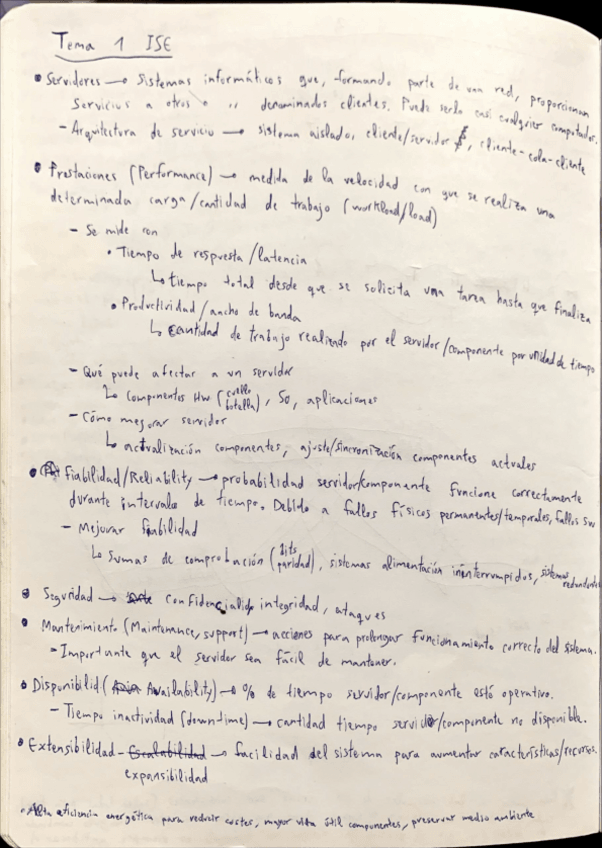 Tema 1 ISE
• Servidores → Sistemas informáticos que, formando parte de una red, proporcionan
servicios a otros " " denominados clientes. Puede serlo casi cualquier computador.
- Arquitectura de servicio → sistema aislado, cliente/servidor, cliente-cola-cliente
• Prestaciones (Performance) → medida de la velocidad con que se realiza una
determinada carga/cantidad de trabajo (workload/load)
- Se mide con
• Tiempo de respuesta/latencia
↳ tiempo total desde que se solicita una tarea hasta que finaliza
• Productividad/ancho de banda
↳ cantidad de trabajo realizado por el servidor/componente por unidad de tiempo
- Qué puede afectar a un servidor
↳ Componentes Hw (cuello botella), SO, aplicaciones
- Cómo mejorar servidor
↳ actualización componentes, ajuste/sincronización componentes actuales
• Fiabilidad/Reliability → probabilidad servidor/componente funcione correctamente
durante intervalo de tiempo. Debido a fallos físicos permanentes/temporales, fallos sw
- Mejorar fiabilidad
↳ Sumas de comprobación (bits paridad), sistemas alimentación ininterrumpidos, sistemas redundantes
• Seguridad → confidencialid, integridad, ataques
• Mantenimiento (Maintenance, support) → acciones para prolongar funcionamiento correcto del sistema.
- Importante que el servidor sea fácil de mantener.
• Disponibilid (Availability) → % de tiempo servidor/componente está operativo.
- Tiempo inactividad (downtime) → cantidad tiempo servidor/componente no disponible.
• Extensibilidad - Escalabilidad → facilidad del sistema para aumentar características/recursos.
expansibilidad
• Alta eficiencia energética para reducir costes, mayor vida útil componentes, preservar medio ambiente